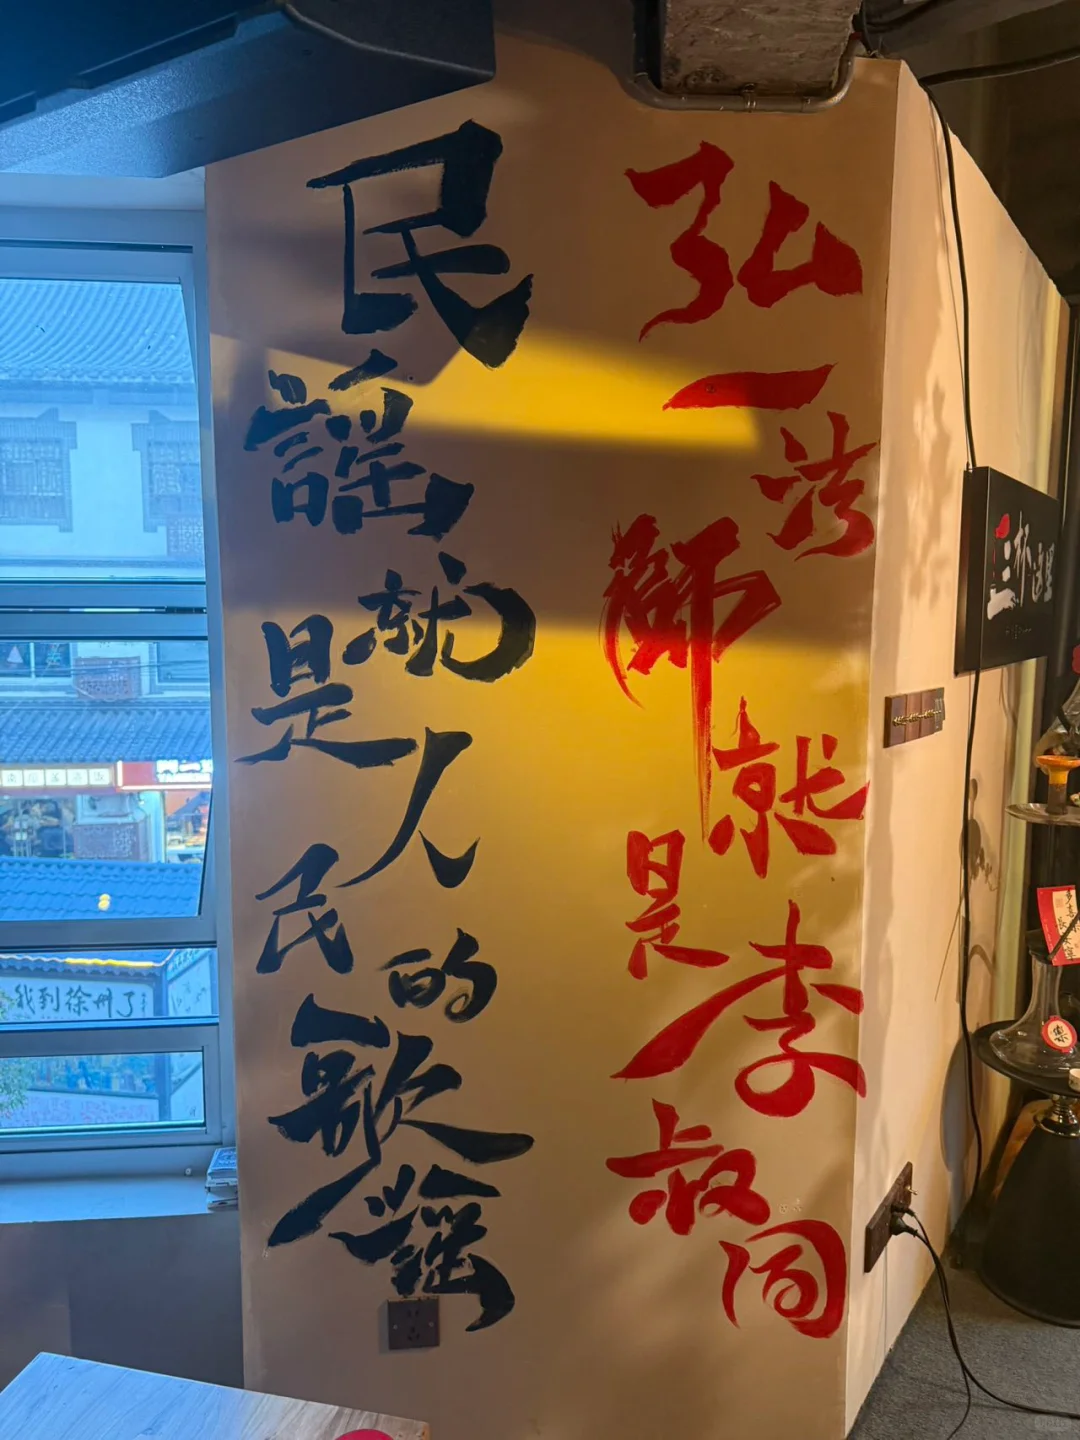 弘一法師就是李叔同
民謡就是人民的歌謡
我到徐州了
三杯